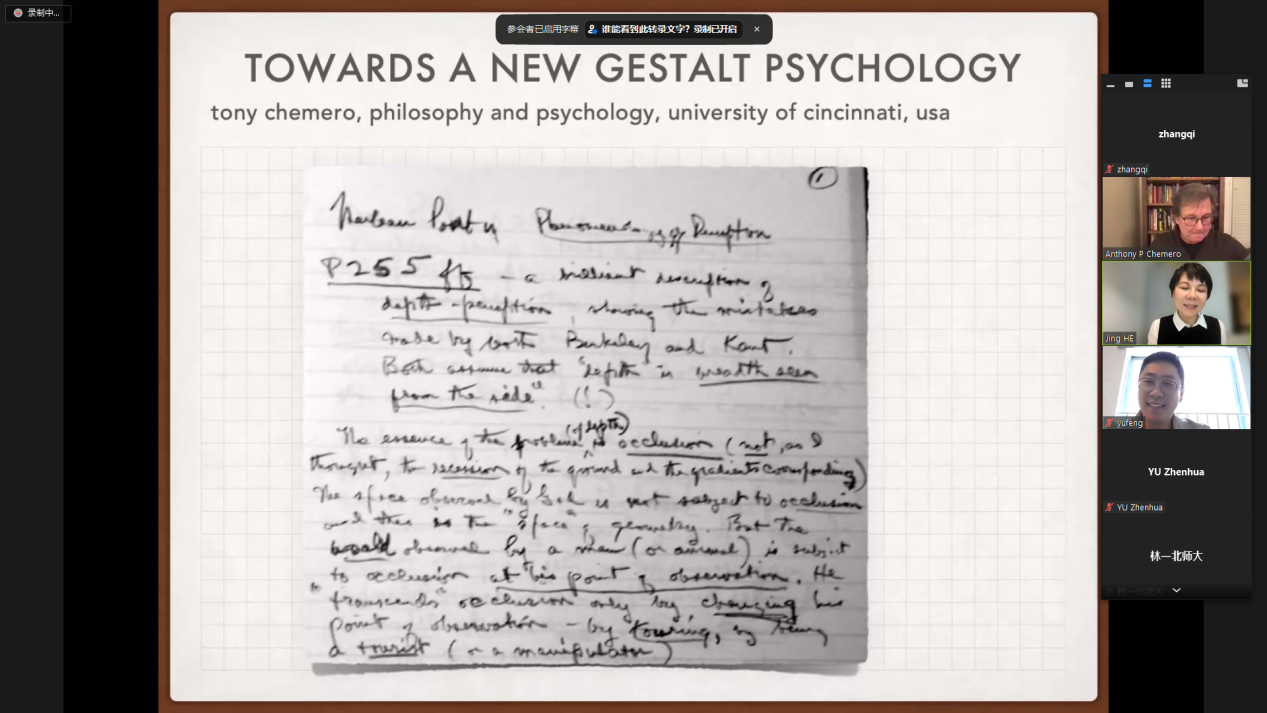 录制中...
参会者已启用字幕 谁能看到此转录文字? 录制已开启
TOWARDS A NEW GESTALT PSYCHOLOGY
tony chemero, philosophy and psychology, university of cincinnati, usa
1
Merleau Ponty Phenomenology of Perception
P255 ff – a brilliant description of
depth-perception, showing the mistakes
made by both Berkeley and Kant.
Both assume that "depth" is breadth seen
from the side". (!)
The essence of the problem (of depth) is occlusion (not, as I
thought, the recession of the ground and the gradients corresponding)
The space observed by God is not subject to occlusion
and this is the "space" of geometry. But the
world observed by a man (or animal) is subject
to occlusion at his point of observation. He
"transcends" occlusion only by changing his
point of observation – by touring, by being
a tourist (or a manipulator)
zhangqi
zhangqi
Anthony P Chemero
Jing HE
yufeng
YU Zhenhua
YU Zhenhua
林一北师大
林一北师大